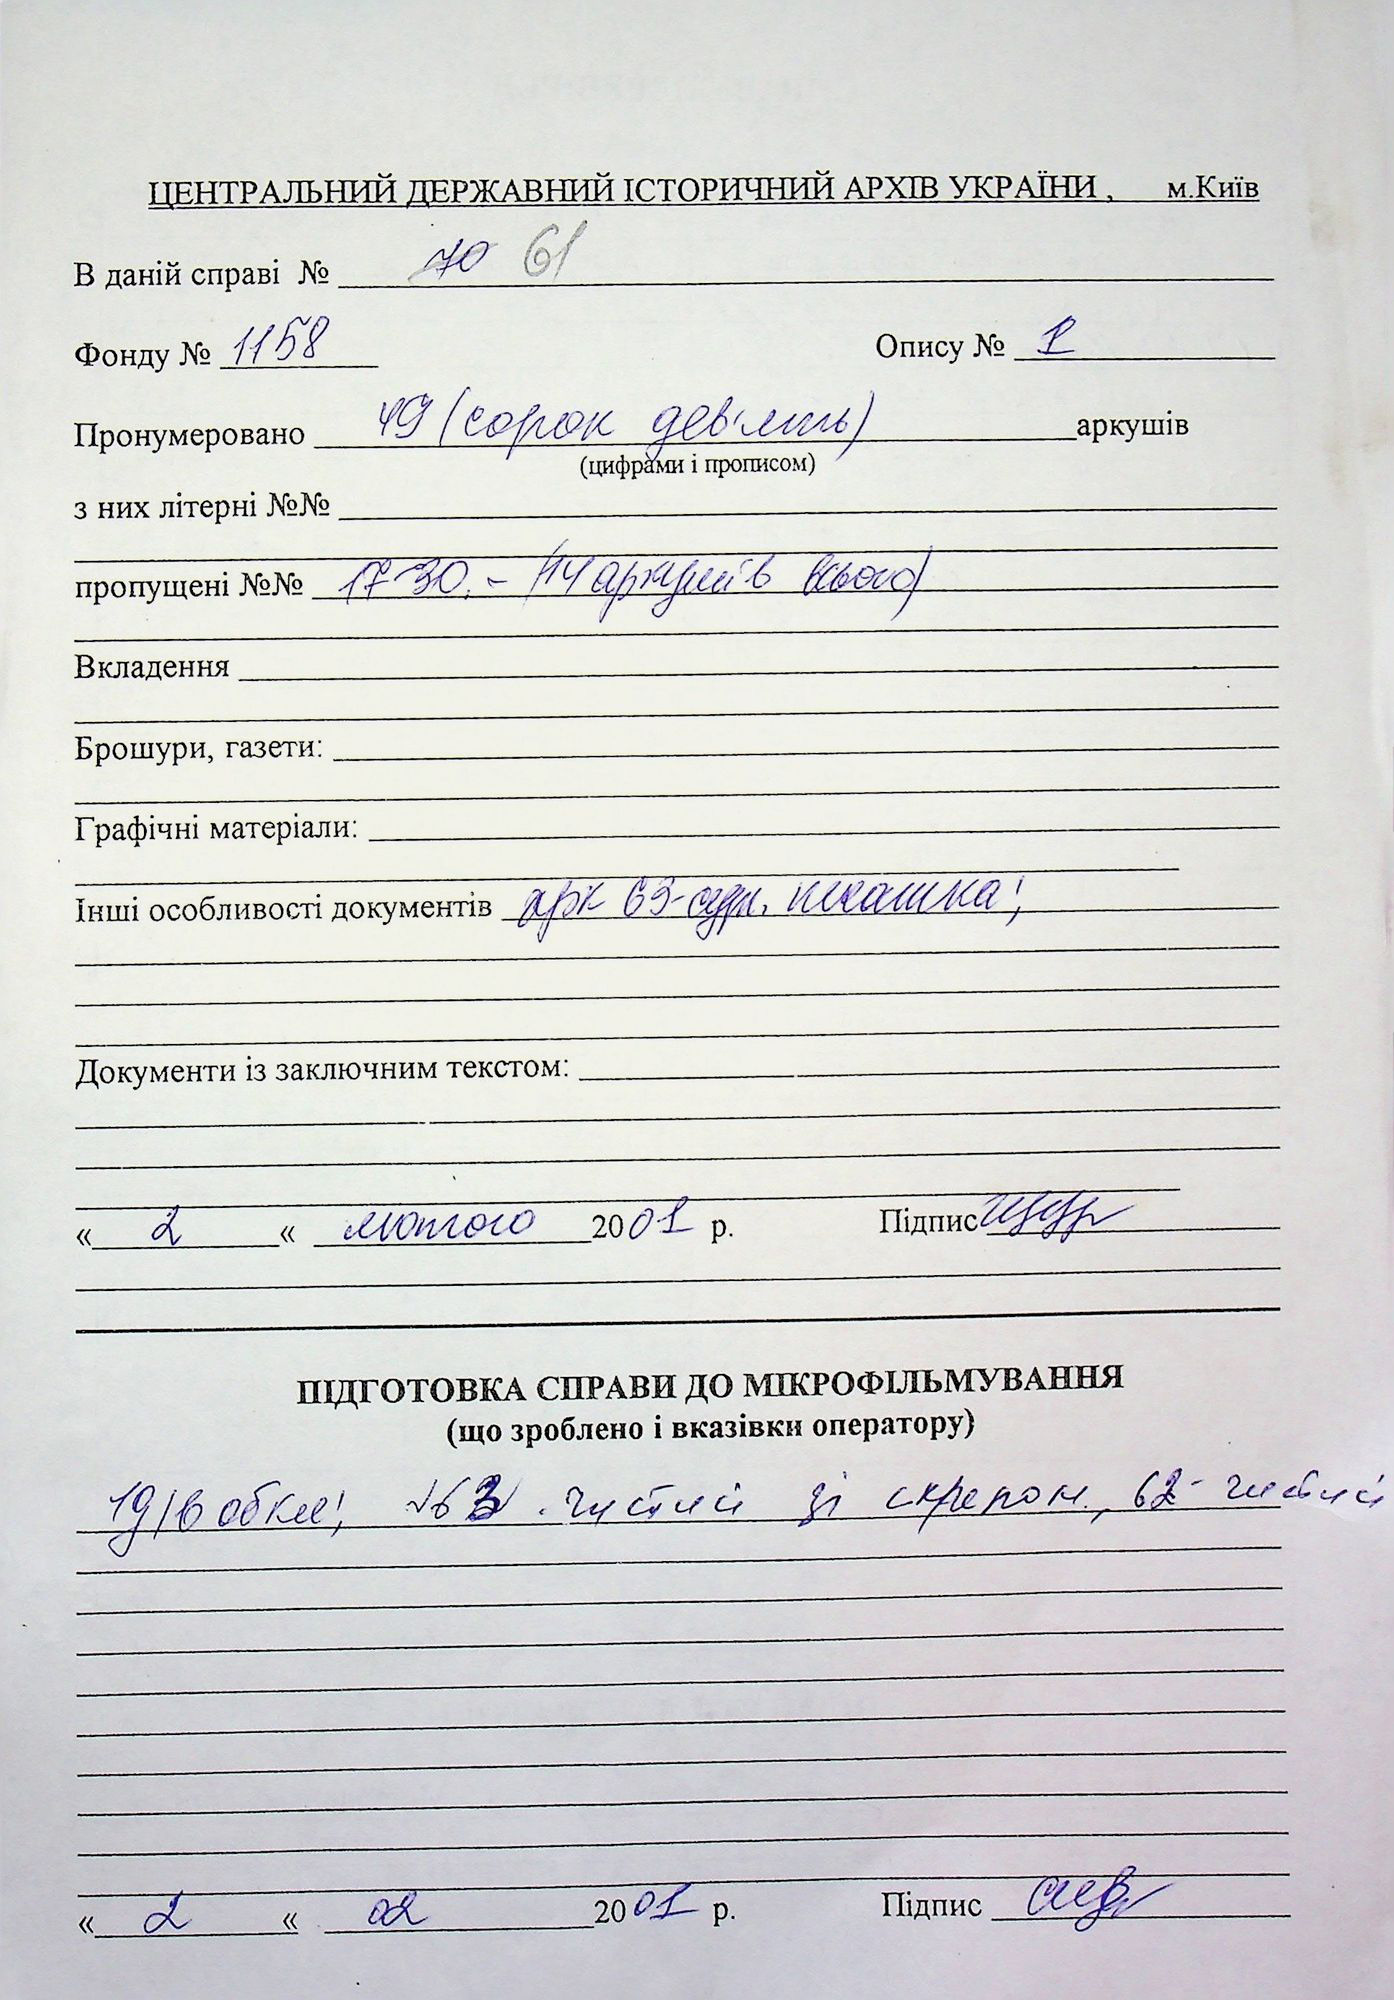 ЦЕНТРАЛЬНИЙ ДЕРЖАВНИЙ ІСТОРИЧНИЙ АРХІВ УКРАЇНИ , м.Київ
В даній справі № 70 61
Фонду № 1158 Опису № 1
Пронумеровано 49 (сорок дев'ять) аркушів
(цифрами і прописом)
з них літерні №№
пропущені №№ 17-30. - (14 аркушів всього)
Вкладення
Брошури, газети:
Графічні матеріали:
Інші особливості документів арк 63-сург. печатка;
Документи із заключним текстом:
« 2 « лютого 2001 р. Підпис
ПІДГОТОВКА СПРАВИ ДО МІКРОФІЛЬМУВАННЯ
(що зроблено і вказівки оператору)
63 чистий зі скрепом, 62- чистий
« 2 « 02 2001 р. Підпис